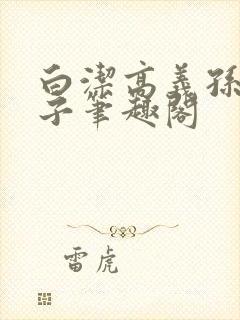 白潔高義孫
子筆趣閣
雷虎